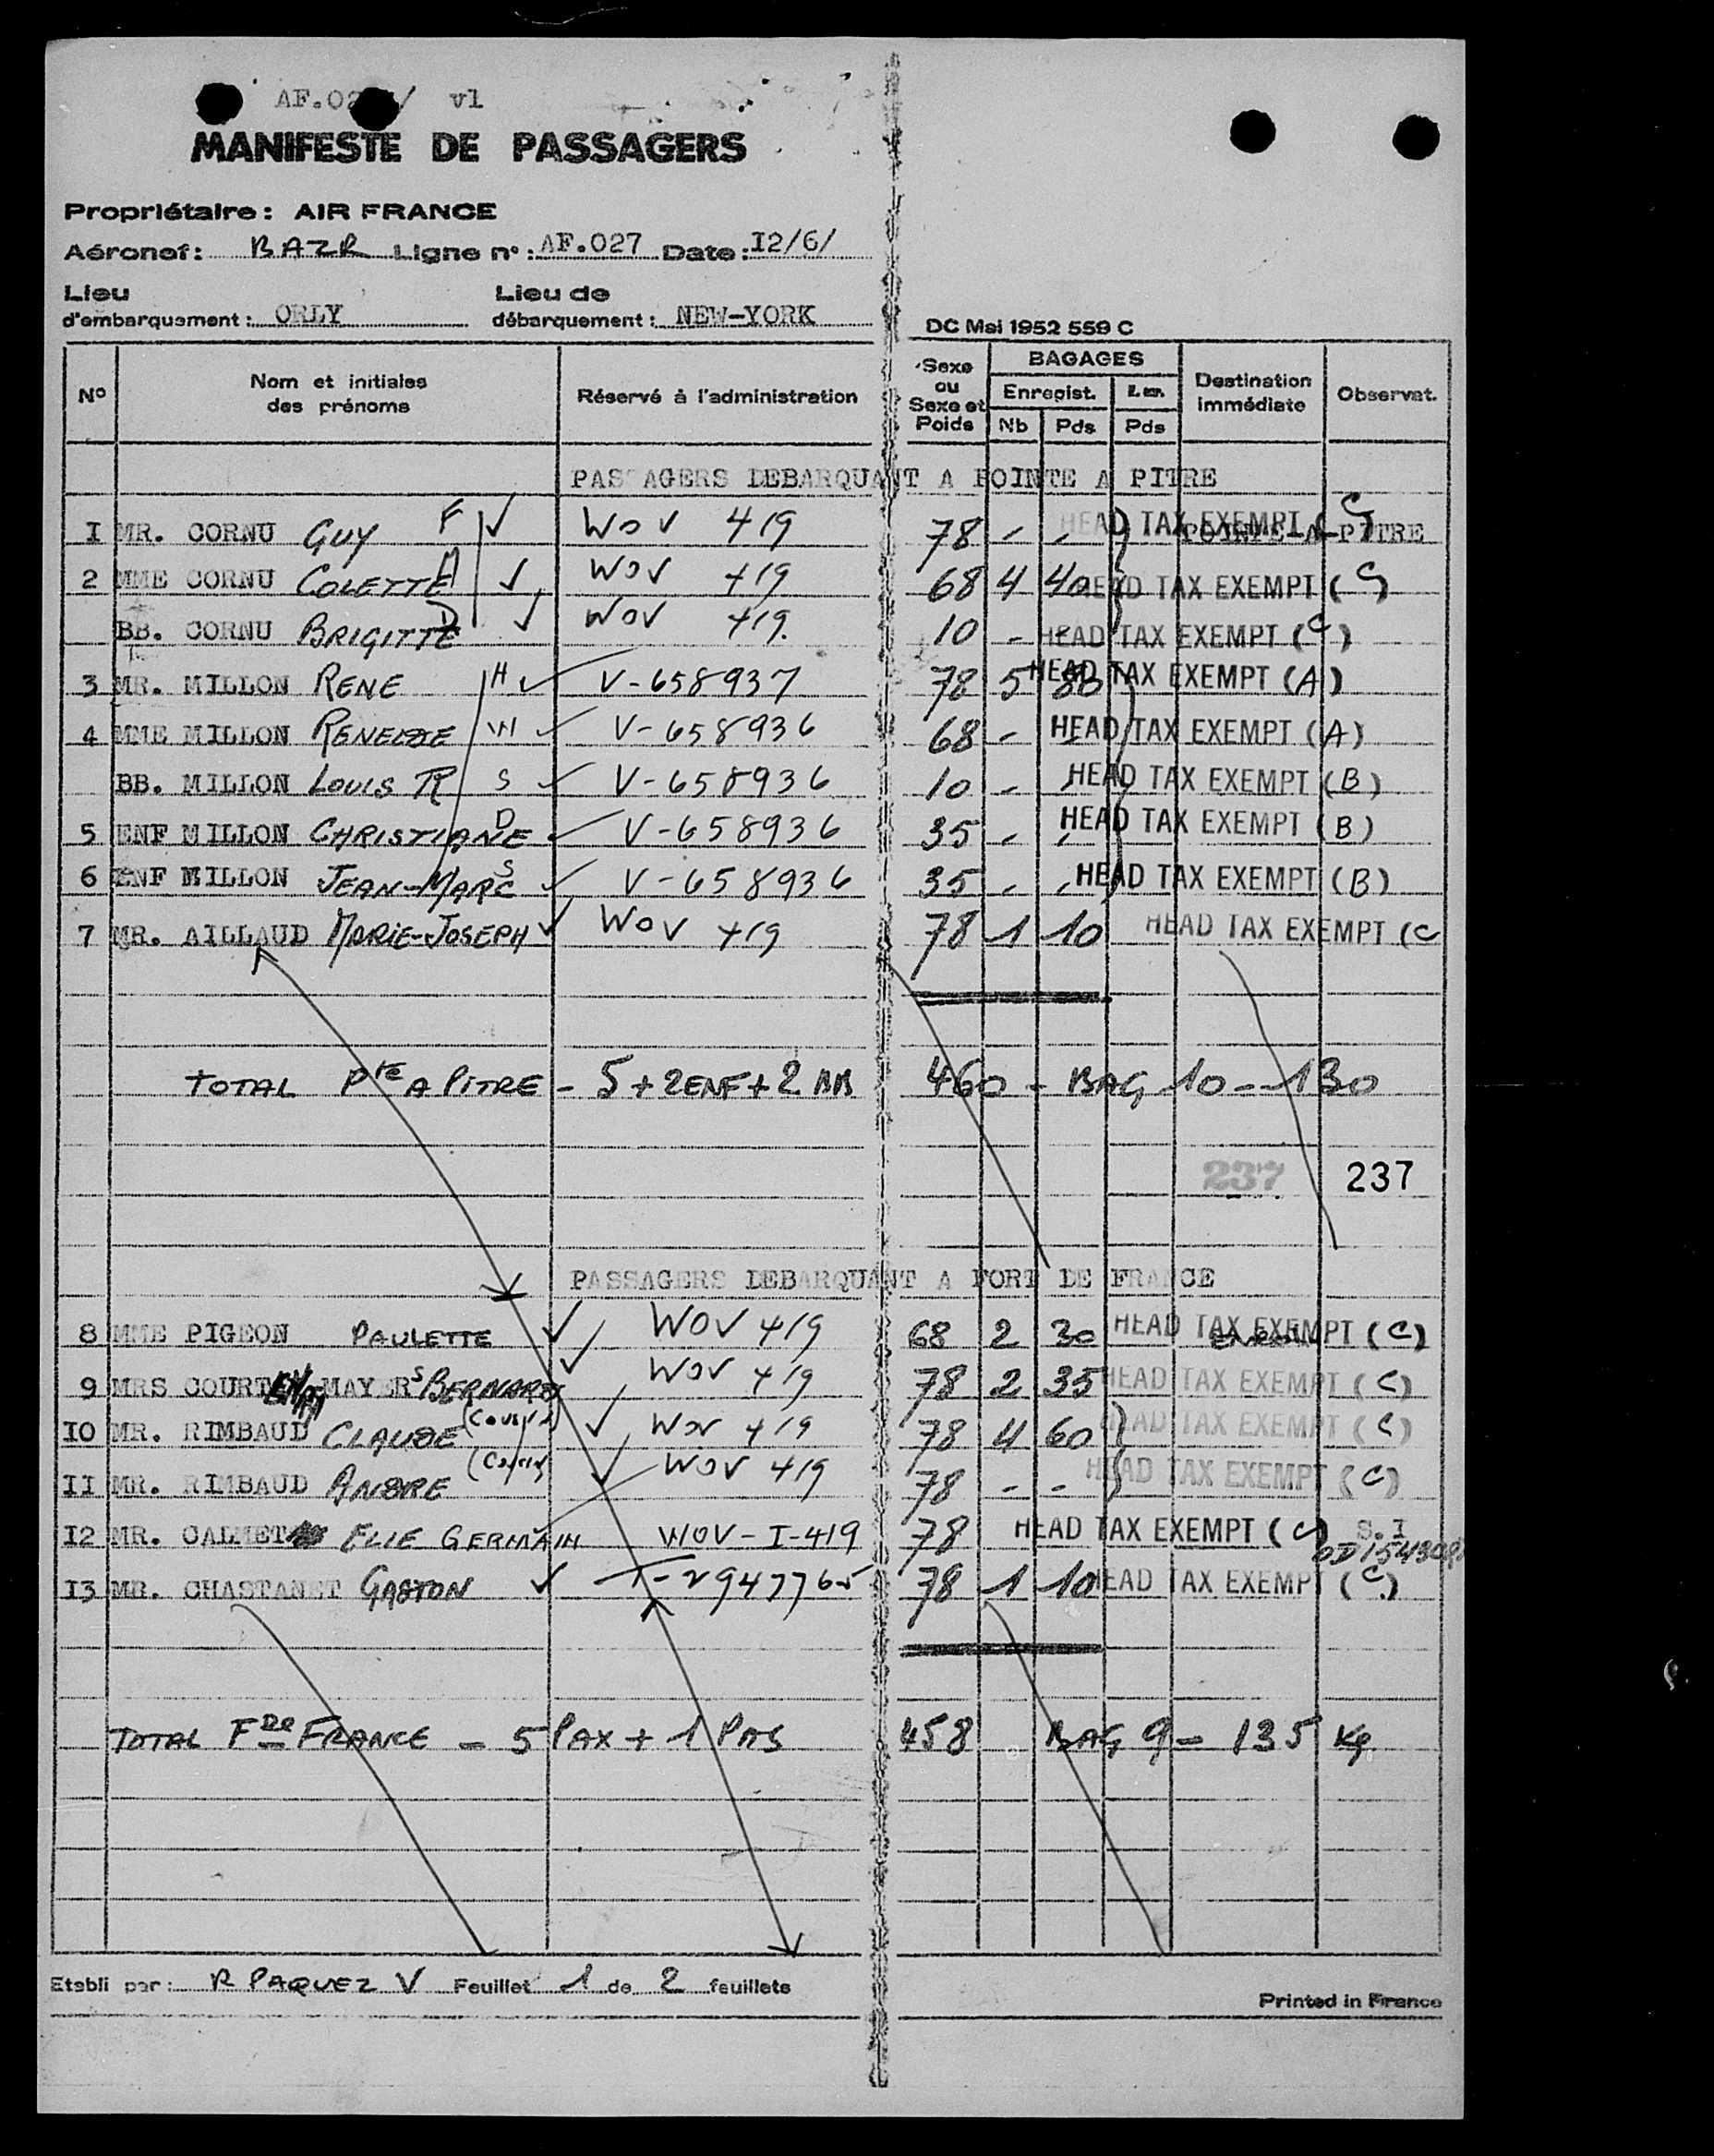 AF.02 / vl
MANIFESTE DE PASSAGERS
Propriétaire: AIR FRANCE
Aéronef: BAZR Ligne n°: AF.027 Date: I2/6/
Lieu d'embarquement: ORLY Lieu de débarquement: NEW-YORK
DC Mai 1952 559 C
N° Nom et initiales des prénoms Réservé à l'administration Sexe ou Sexe et Poids BAGAGES Enregist. Nb Pds Pds Destination immédiate Observat.
PASSAGERS DEBARQUANT A POINTE A PITRE
I MR. CORNU GUY F ✓ WOV 419 78 - - HEAD TAX EXEMPT (C) POINTE A PITRE
2 MME CORNU COLETTE M ✓ WOV 419 68 4 40 HEAD TAX EXEMPT (C)
BB. CORNU BRIGITTE D ✓ WOV 419. 10 - - HEAD TAX EXEMPT (C)
3 MR. MILLON RENE H ✓ V-658937 78 5 80 HEAD TAX EXEMPT (A)
4 MME MILLON W ✓ V-658936 68 - - HEAD TAX EXEMPT (A)
BB. MILLON LOUIS S ✓ V-658936 10 - - HEAD TAX EXEMPT (B)
5 ENF MILLON CHRISTIANE D ✓ V-658936 35 - - HEAD TAX EXEMPT (B)
6 ENF MILLON JEAN-MARC S ✓ V-658936 35 - - HEAD TAX EXEMPT (B)
7 MR. AILLAUD MARIE-JOSEPH ✓ WOV 419 78 1 10 HEAD TAX EXEMPT (C
TOTAL Pte A PITRE - 5 + 2 ENF + 2 BB 460 - BAG 10 - 130
237 237
PASSAGERS DEBARQUANT A FORT DE FRANCE
8 MME PIGEON PAULETTE ✓ WOV 419 68 2 30 HEAD TAX EXEMPT (C)
9 MRS MAYERS BERNARD ✓ WOV 419 78 2 35 HEAD TAX EXEMPT (C)
IO MR. RIMBAUD CLAUDE (Cousin) ✓ WOV 419 78 4 60 HEAD TAX EXEMPT (C)
II MR. RIMBAUD ANDRE (Cousin) ✓ WOV 419 78 - - HEAD TAX EXEMPT (C)
I2 MR. CALMET ELIE GERMAIN WOV-I-419 78 HEAD TAX EXEMPT (C) S.I
I3 MR. CHASTANET GASTON ✓ T-2947765 78 1 10 HEAD TAX EXEMPT (C)
TOTAL F de FRANCE - 5 PAX + 1 458 BAG 9 = 135 Kg
Etabli par: R PAQUEZ V Feuillet 1 de 2 feuillets
Printed in France